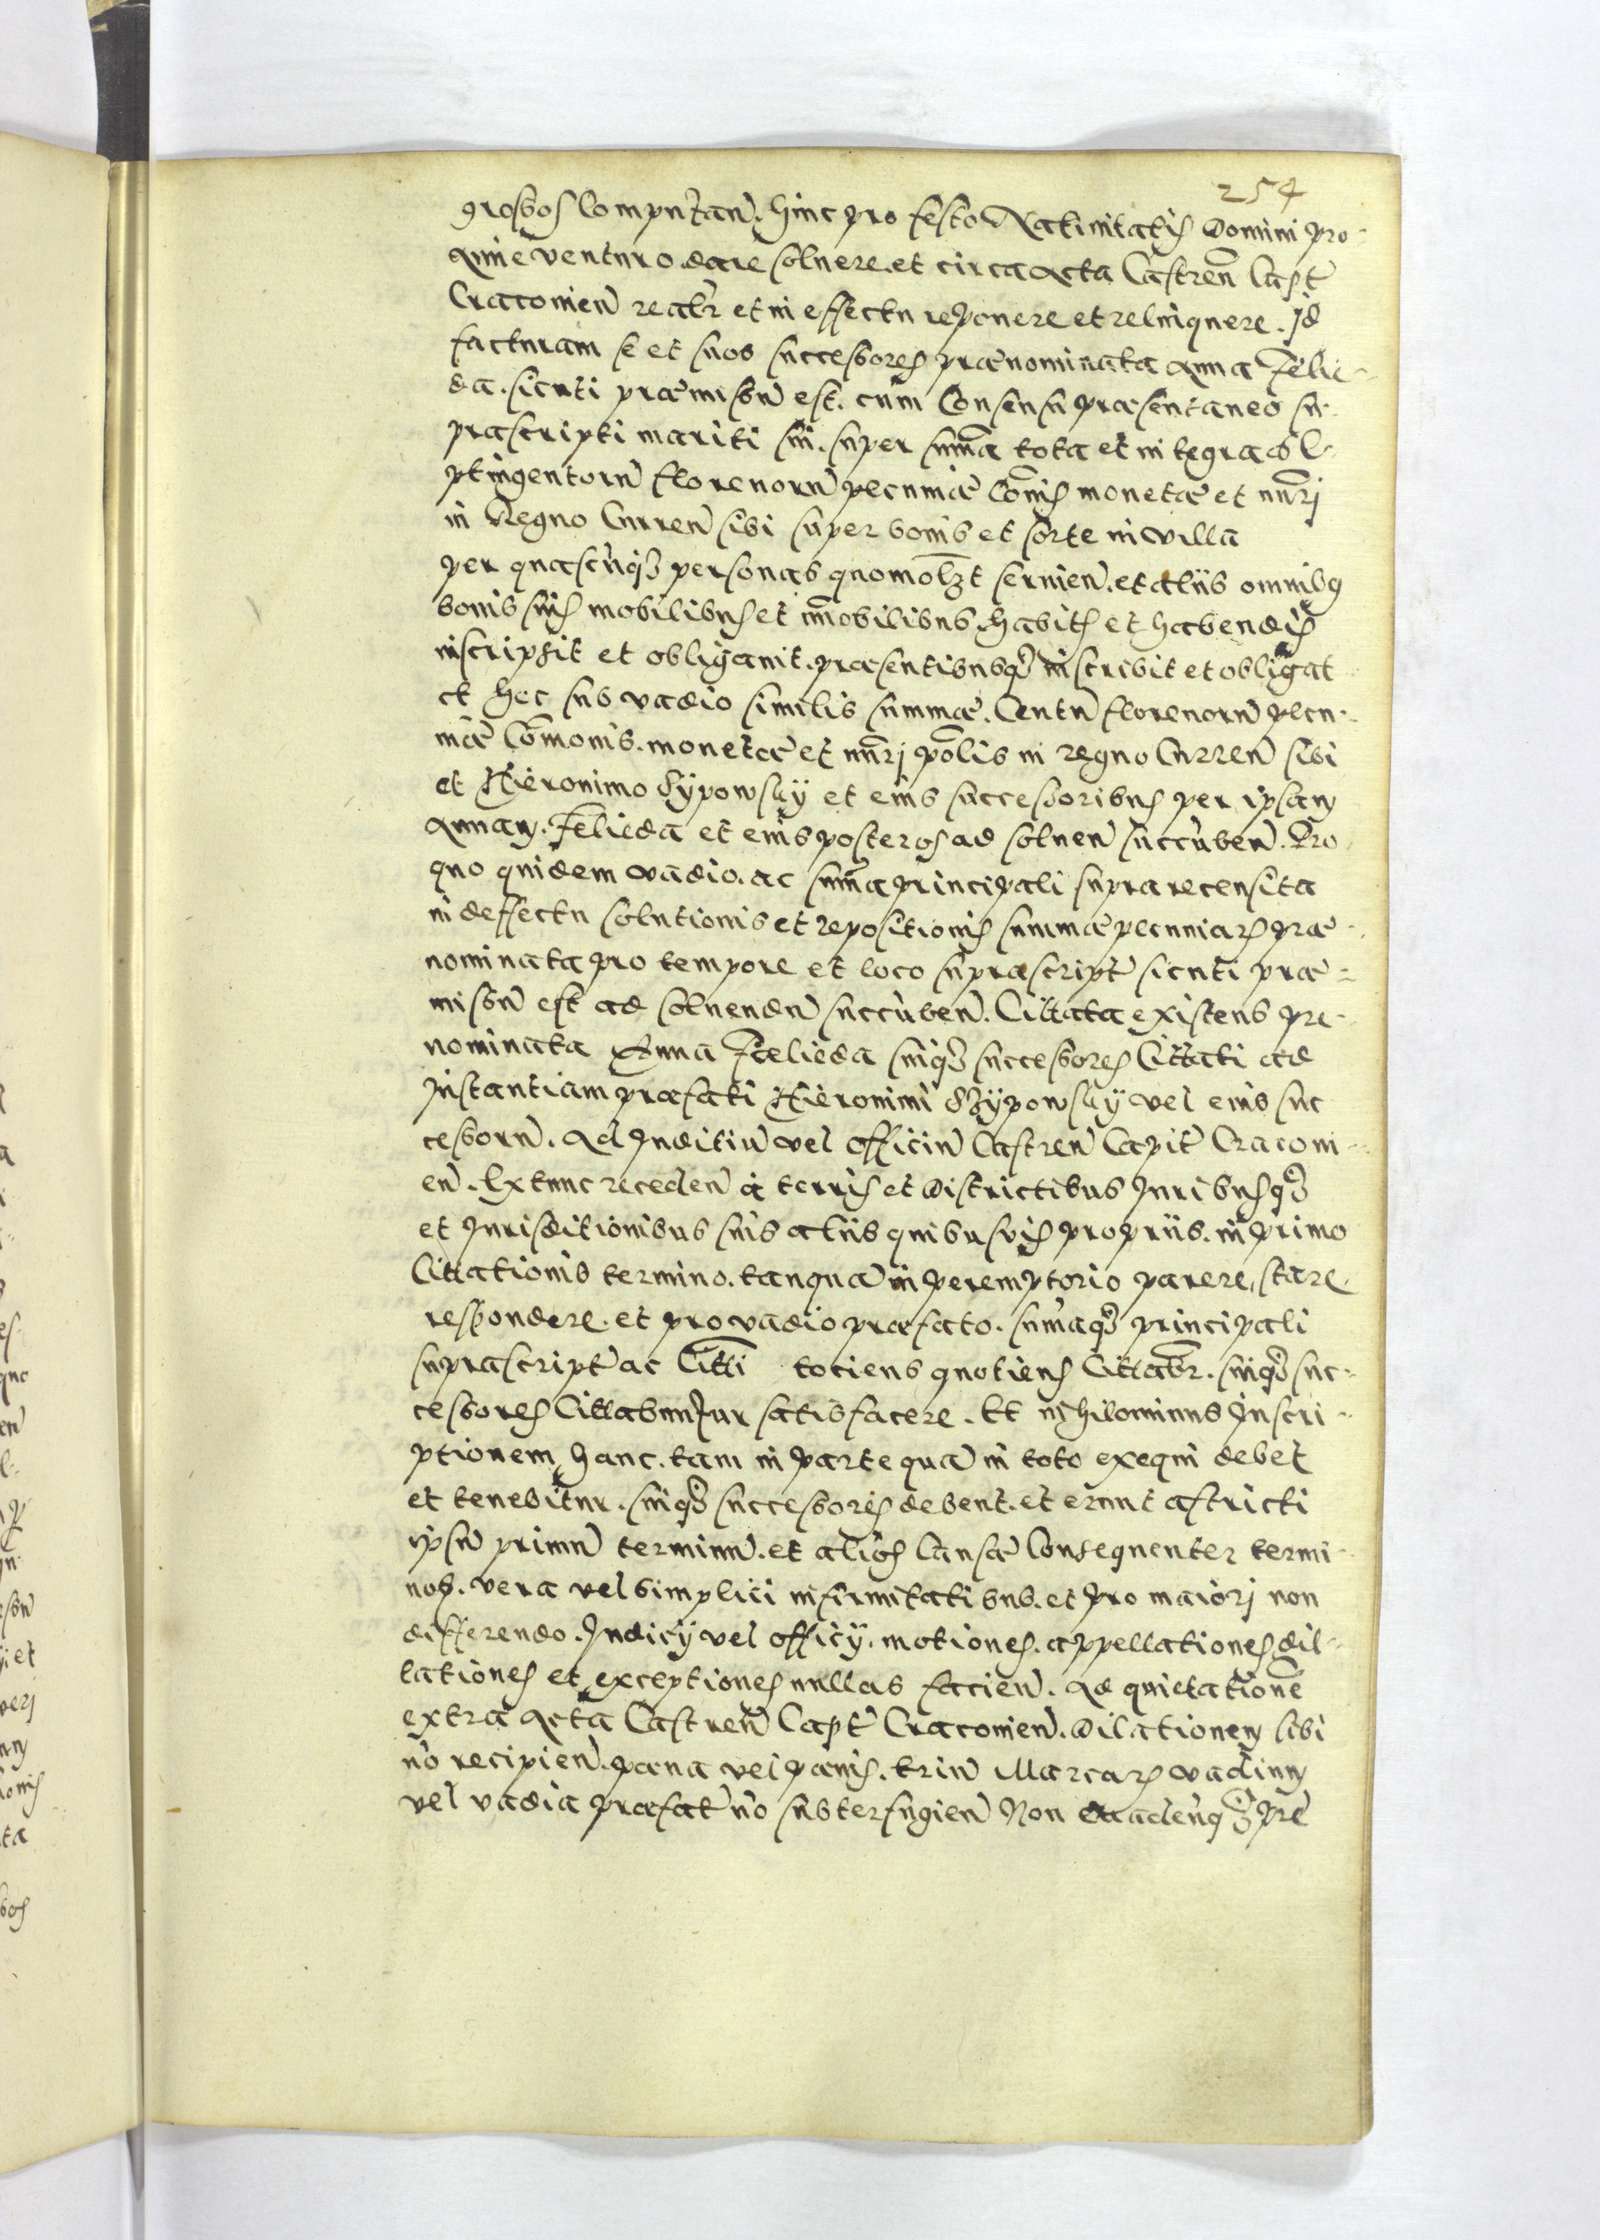 254
grossos computan̄. hinc pro festo Natiuitatis Domini pro-
xime venturo. dare soluere. et circa Acta Castren̄ Capt
Cracouien̄ realr et in effectu reponere et relinquere. Id
facturam se et suos successores prænominata Anna Felie-
da. sicuti præmissū est. cum Consensu præsentaneo su-
prascripti mariti sui. super suma tota et integra
ptingentorū florenorū pecuniæ cōnis monetæ et nūri
in Regno Curren̄ sibi super bonis et sorte in villa
per quascūq3 personas quomol3t seruien̄. et aliis omnib9
bonis suis mobilibus et imobilibus. habitis et habendis
inscripsit et obligauit. præsentibusq3 inscribit et obligat
et hec sub vadio similis summæ. Centū florenorū pecu-
niæ Cōmonis. monetæ et nūri pōlis in regno Curren̄ sibi
et Hieronimo Sypowsky et eius successoribus per ipsam
Annam. Felieda et eius posteros ad soluen̄ succūben̄. Pro
quo quidem vadio. ac sūma principali supra recensita
in deffectu solutionis et repositionis summæ pecuniar præ-
nominata pro tempore et loco suprascript̄ sicuti præ-
missū est ad soluendū succūben̄. Cittata existens pre-
nominata Anna Felieda suiq3 successores Cittati ad
Instantiam præfati Hieronimi Szypowsky vel eius suc
cessorū. Ad Iuditiū vel officiū Castren̄ Capit̄ Cracoui-
en̄. Extunc receden̄ à terris et districtibus Iuribusq3
et Iurisditionibus suis aliis quibusvis propriis. in primo
Cittationis termino. tanquā in peremptorio parere, stare.
respondere. et pro vadio præfato. sumaq3 principali
suprascript̄ ac Citti tociens quotiens Cittabr̄. suiq3 suc-
cessores Cittabuntur satisfacere. Et nihilominus Inscri-
ptionem hanc. tam in parte quā in toto exequi debet
et tenebitur. suiq3 successores debent. et erunt astricti
ipsū primū terminū. et alios Causæ Consequenter termi-
nos. vera vel simplici infirmitatibus. et pro maiori non
differendo. Iudicij vel officij. motiones. appellationes dil-
lationes et exceptiones nullas facien̄. Ad quietationē
extra Acta Castren̄ Capt̄ Cracouien̄. Dilationem sibi
nō recipien̄. pæna vel pænis. triū Marcar vadium
vel vadia præfat̄ nō subterfugien̄ Non euadenq3 pre